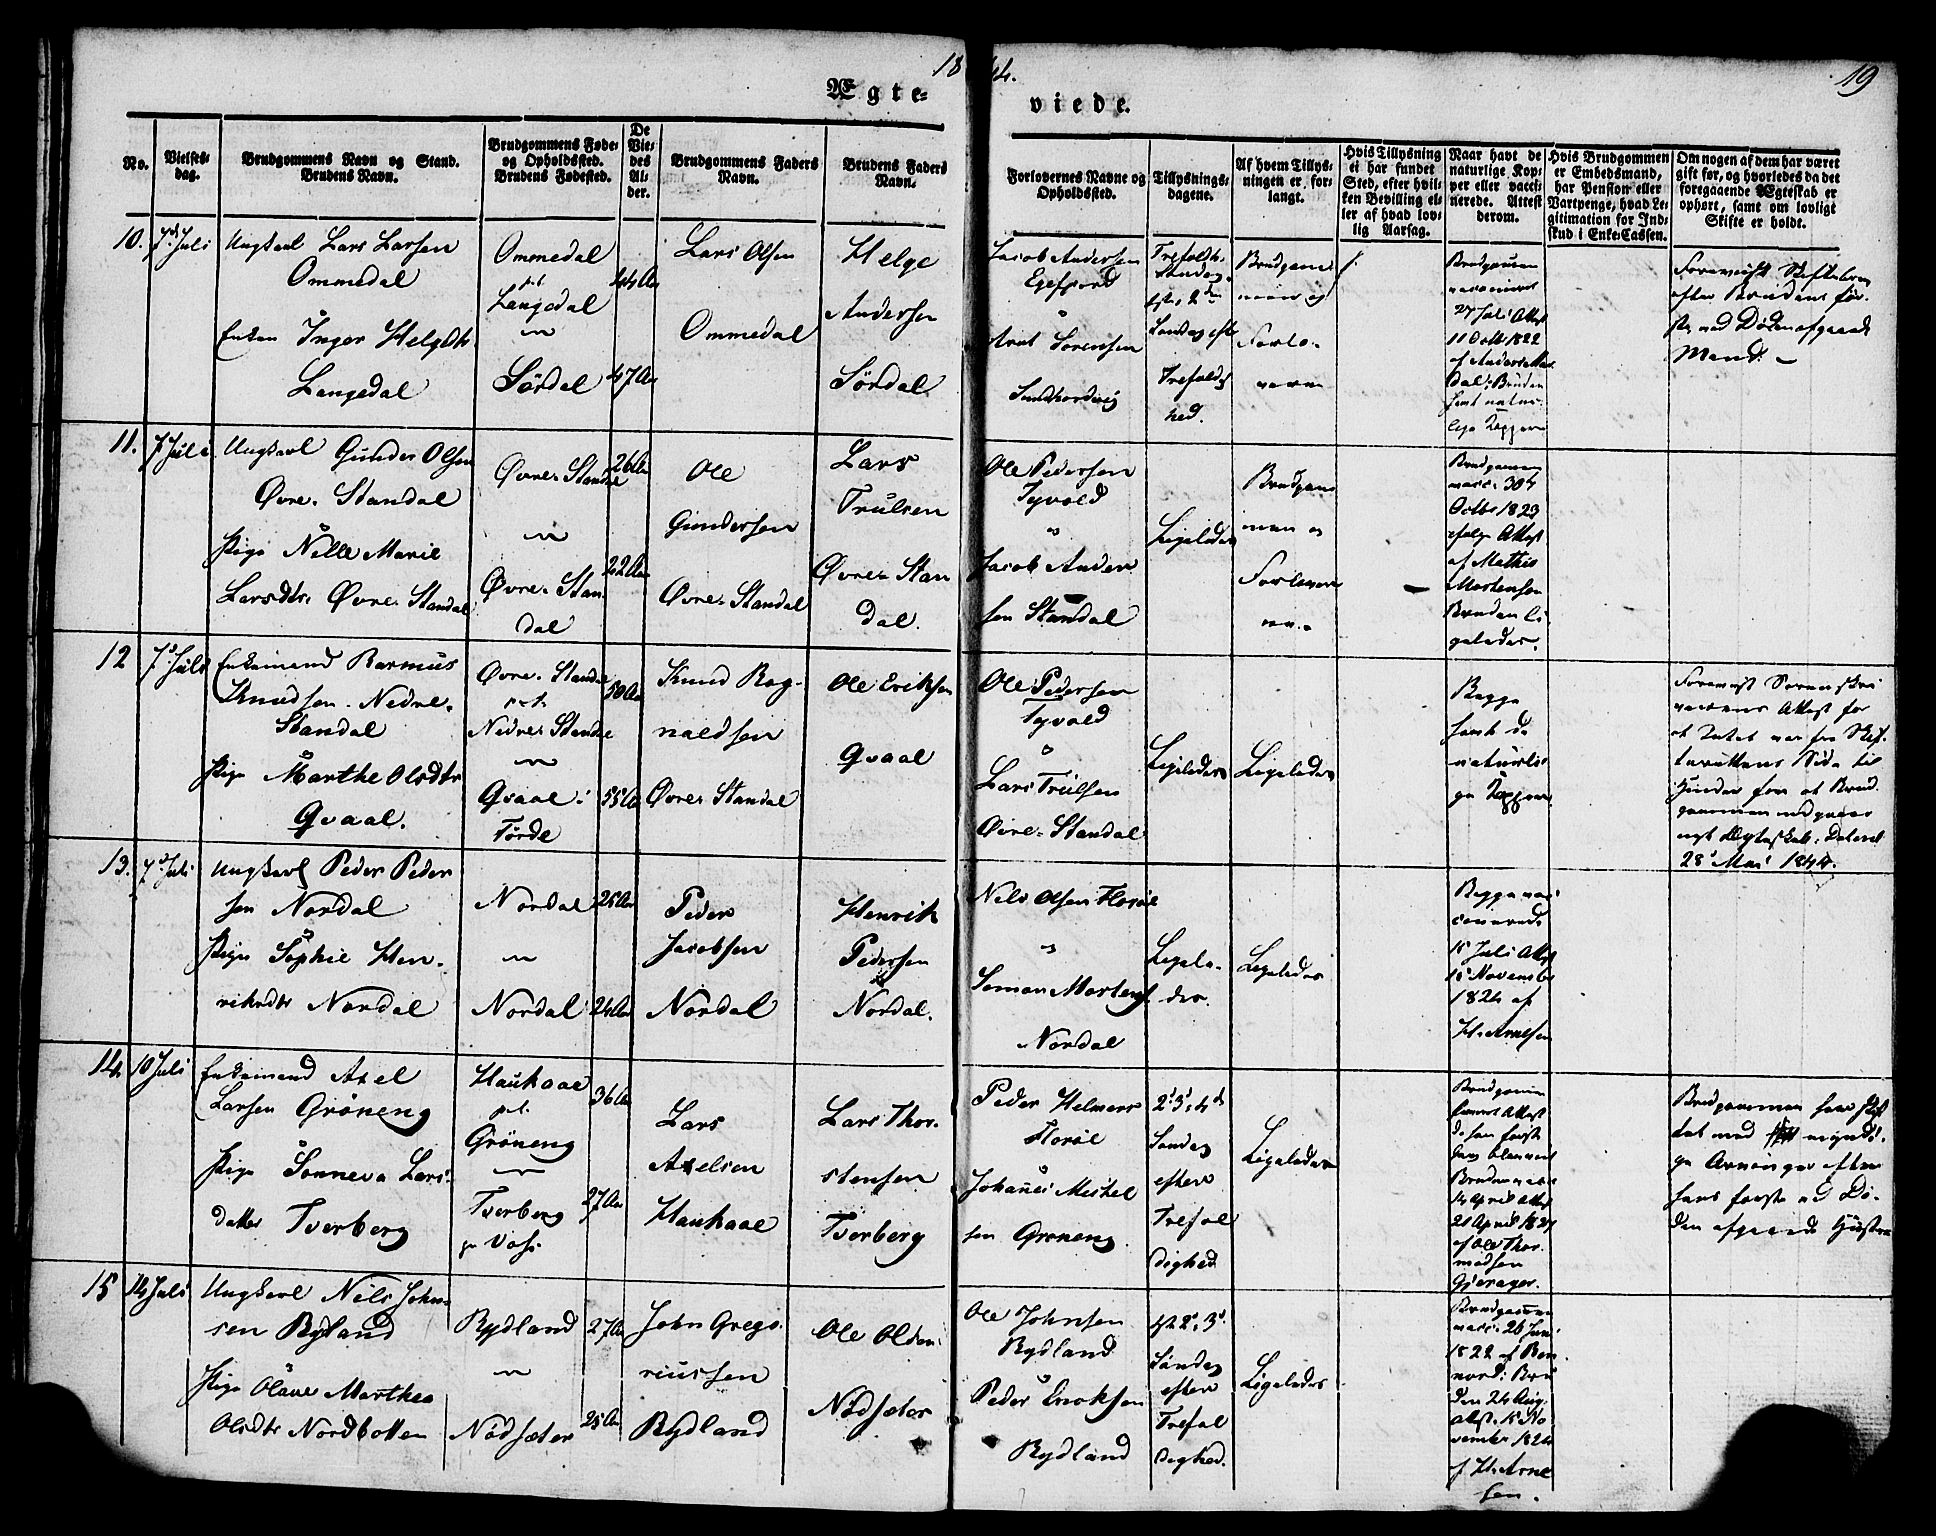 1844.
19
Ægteviede.
No.
Vielsesdag.
Brudgommens Navn og Stand.
Brudens Navn.
Brudgommens Føde- og Opholdssted.
Brudens Fødested.
De Viedes Alder.
Brudgommens Faders Navn.
Brudens Faders Navn.
Forlovernes Navne og Opholdssted.
Tillysningsdagene.
Af hvem Tillysningen er forlangt.
Hvis Tillysning ei har fundet Sted, efter hvilken Bevilling eller af hvad lovlig Aarsag.
Naar havt de naturlige Kopper eller vaccinerede. Attest derom.
Hvis Brudgommen er Embedsmand, har Pension eller Vartpenge, hvad Legitimation for Indskud i Enke-Cassen.
Om nogen af dem har været gift før, og hvorledes da det foregaaende Ægteskab er ophørt, samt om lovligt Skifte er holdt.
10.
7de Juli
Ungkarl Lars Larsen
Ommedal
Enken Inger Helgdtr
Langedal
Ommedal
Langedal
Sørdal
44 Aar
47 Aar
Lars Olsen
Ommedal
Helge
Andersen
Sørdal
Jacob Andersen
Egefjord
Arnt Sørensen
Søndag
Brudgommen og
Forloverne
27 Juli Attest
11 Octb: 1822
Brudens
Mand.
11.
7 Juli
Ungkarl Gunder Olsen
Øvre-Standal
Pige Nille Marie
Larsdtr Øvre-Standal
Øvre-Standal
Øvre-Standal
26 Aar
22 Aar
Ole
Gundersen
Øvre-Standal
Lars
Trulsen
Øvre-Standal.
Ole Pedersen
Tyvold
Jacob Andersen Standal
Ligeledes
Brudgommen og
Forloverne.
Brudgommen
vacc: 30te
Octbr 1823
ifølge Attest
af Mathis
Mortensen
Bruden ligeledes.
12
7de Juli
Enkemand Rasmus
Knudsen Nedre-
Standal
Pige Marthe Olsdtr
Qvaal.
Øvre-Standal
Nedre-Standal
Qvaal i
Førde
50 Aar
55 Aar
Knud Rag-
naldsen
Øvre-Standal
Ole Eriksen
Qvaal
Ole Pedersen
Tyvold
Lars Trulsen
Øvre-Standal
Ligeledes
Ligeledes
Begge
havt de
naturlige Kopper
Forevist Sorenskriverens Attest for
at Intet var fra Skifterettens Side til
Hinder for at Brudgommen indgaaer
nyt Ægteskab. Dateret
28 Mai 1844.
13.
7de Juli
Ungkarl Peder Peder
sen Nordal
Pige Sophie Hen-
riksdtr Nordal
Nordal
Nordal
24 Aar
Peder
Jacobsen
Nordal
Henrik
Pedersen
Nordal.
Nils Olsen Florøe
Nordal
Ligele-
des.
Ligeledes
Begge vac-
cinerede
15 Juli Attest
November
1824 af
H. Arnesen
14.
10 Juli
Enkemand Axel
Larsen Grøneng
Pige Sønneva Lars-
datter Tverberg
Haukaae
Grøneng
Tverberg
paa Vos.
36 Aar
27 Aar
Lars
Axelsen
Haukaae
Lars Thor-
stensen
Tverberg
Peder Helmers
Florøe
Johanes Mikkel
sen Grøneng
2, 3, 4de
Søndag
efter
Trefol
dighed
Ligeledes
14 April Attest
21 April
af Ole Thor-
modsen
Gjerager.
15
14 Juli
Ungkarl Nils John-
sen Rydland
Pige Olave Marthea
Olsdtr Nordbotten
Rydland
Nødsæter
27 Aar
25 Aar
John Grego-
riussen
Rydland
Ole Olsen
Nødsæter
Ole Johnsen
Rydland
Peder Eriksen
Rydland
Søndag
efter
Trefol
dighed.
Ligeledes
Brudgommen
vacc: 26 Juni
1822
Bruden 24 Aug.
Attest 15 No
vember 1824
af H. Arne
sen.